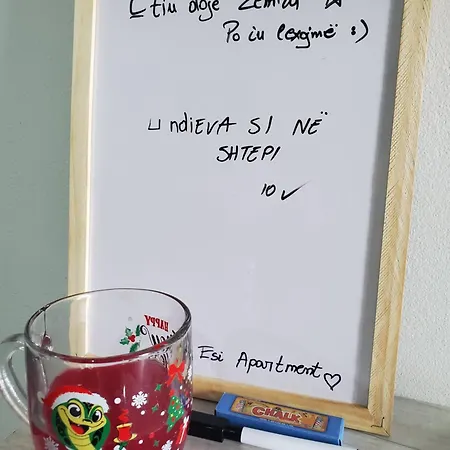 Ç'tiu doje Zemra
Po iu lexojmë :)
UndiEVA SI NË
SHTEPI
10 ✓
Esi Apartment ♡
HAPPY
New
CHALK